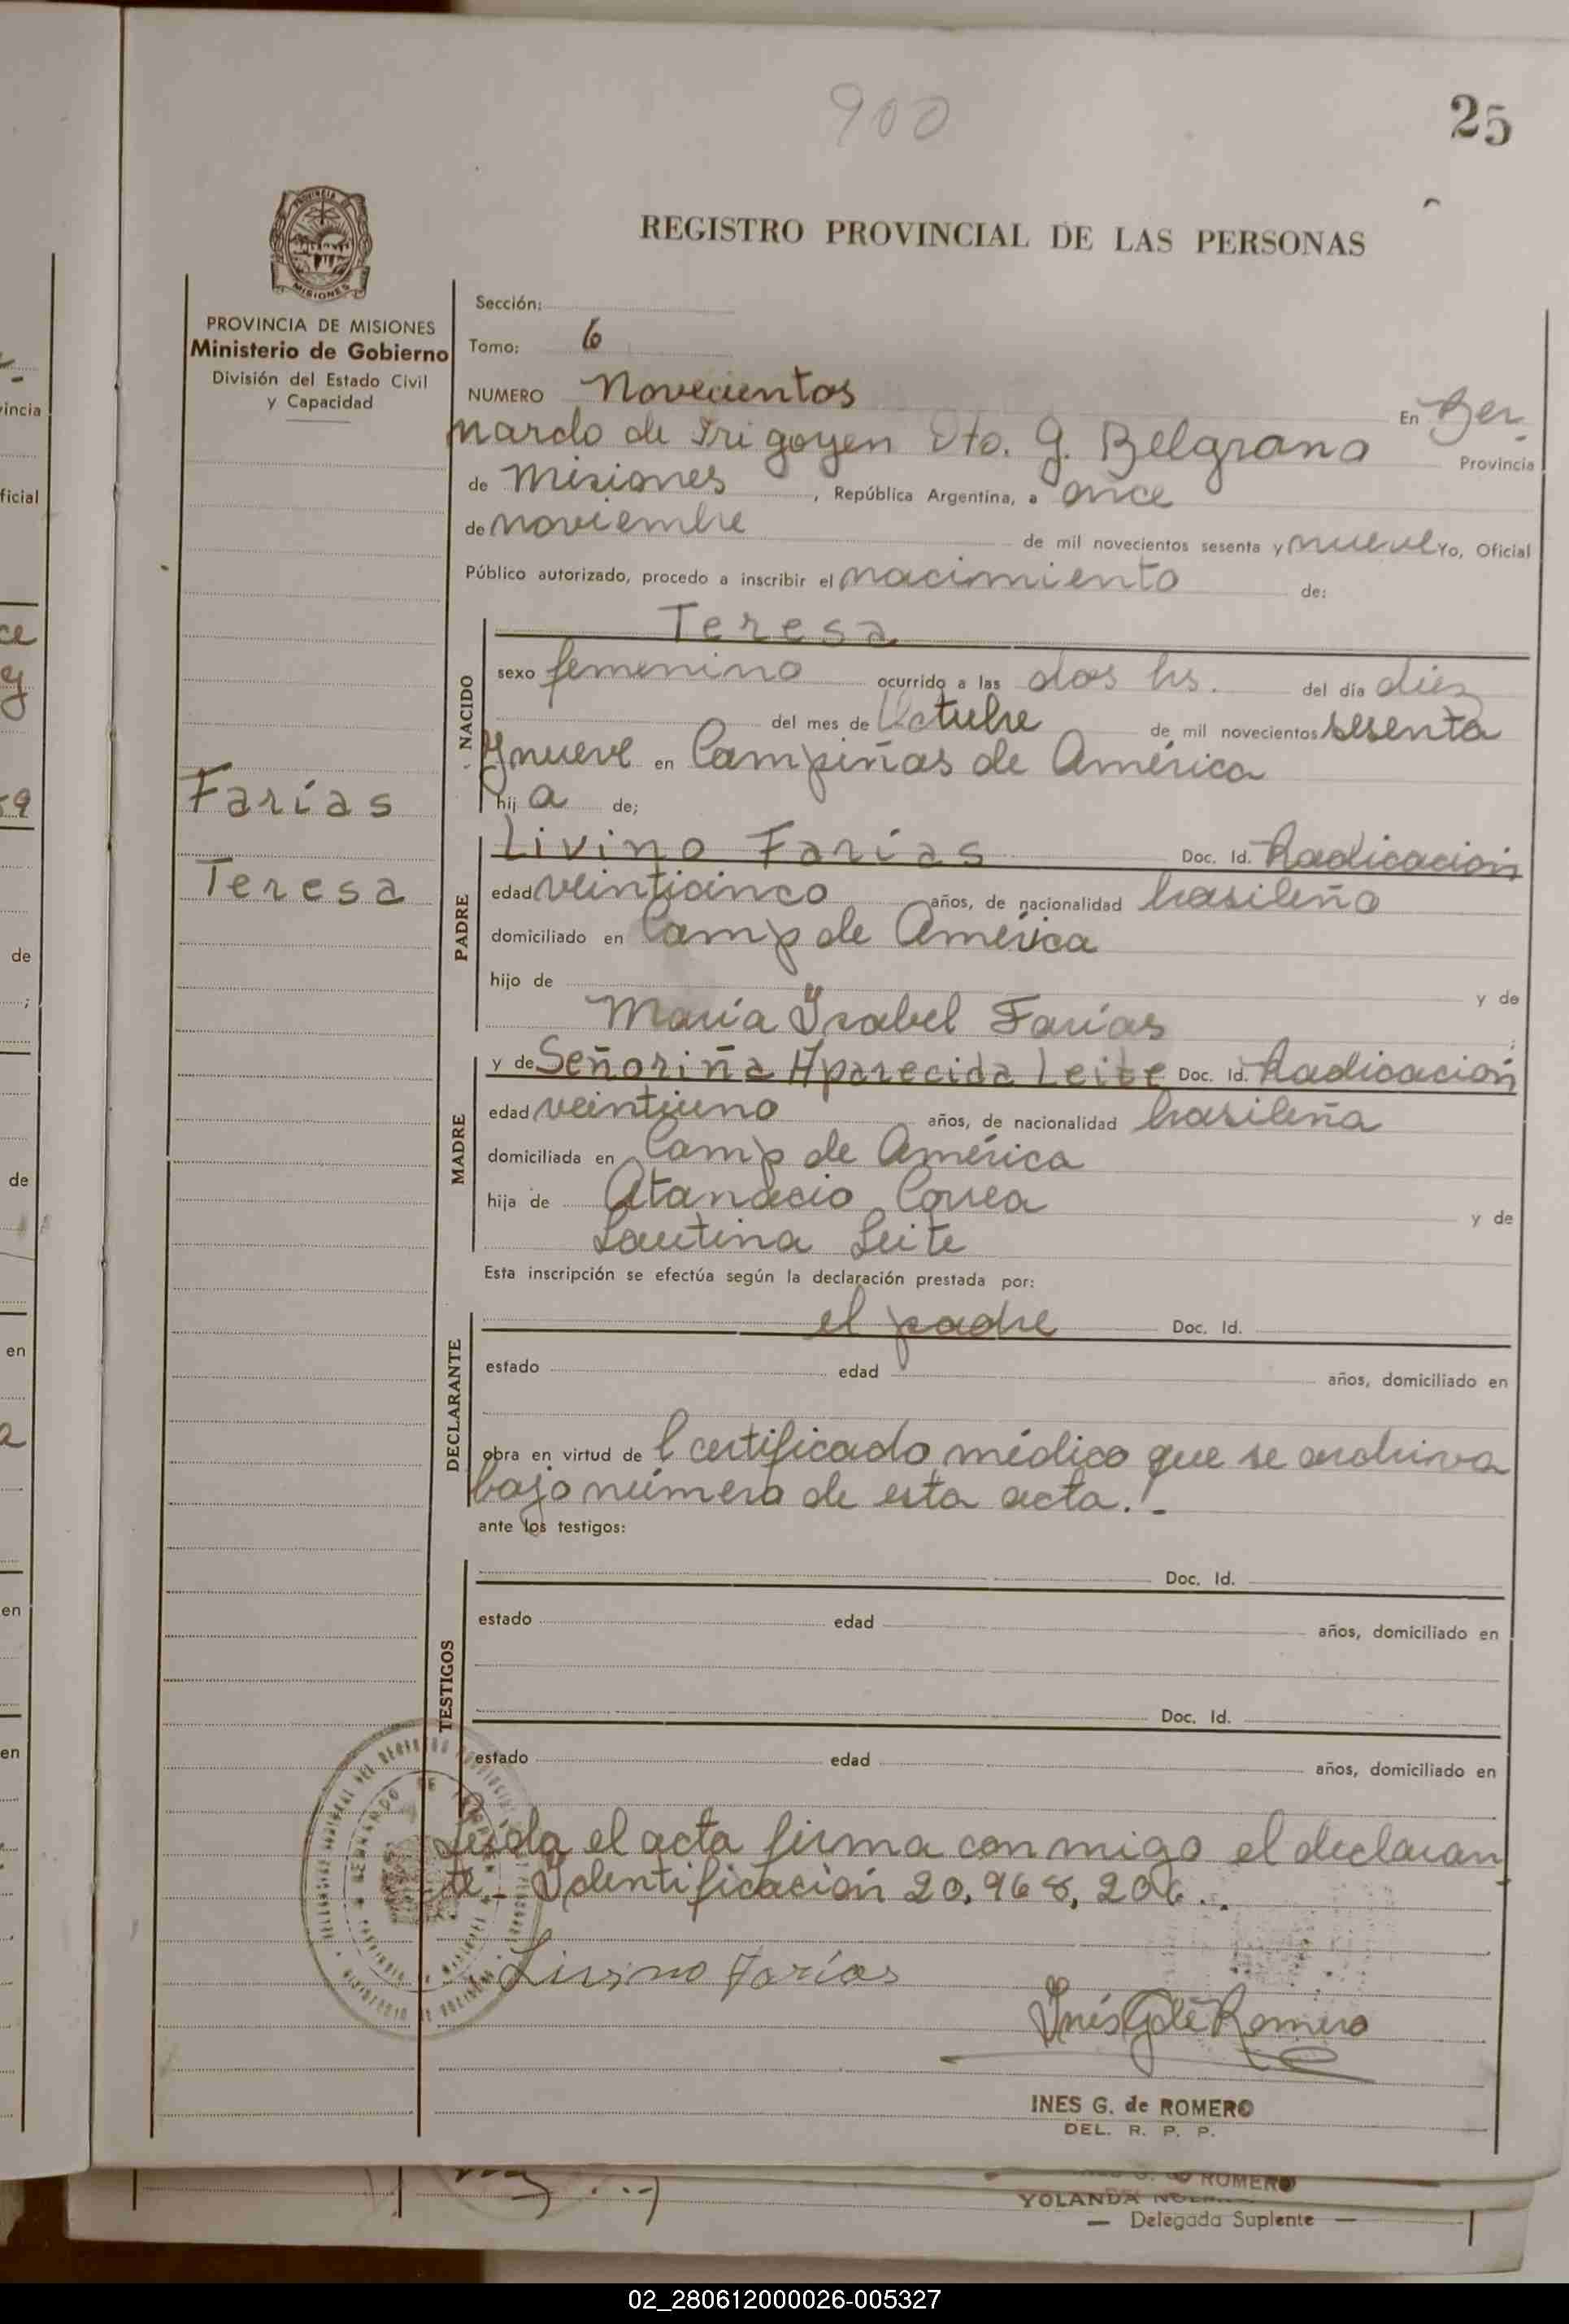 900
25
REGISTRO PROVINCIAL DE LAS PERSONAS
PROVINCIA DE MISIONES
Ministerio de Gobierno
División del Estado Civil
y Capacidad
Farías
Teresa
Sección:
Tomo: 6
NUMERO Novecientos En Ber-
nardo de Irigoyen Dto. G. Belgrano Provincia
de Misiones, República Argentina, a once
de noviembre de mil novecientos sesenta y nueve Yo, Oficial
Público autorizado, procedo a inscribir el nacimiento de:
NACIDO
Teresa
sexo femenino ocurrido a las dos hs. del día diez
del mes de Octubre de mil novecientos sesenta
y nueve en Campiñas de América
hij a de;
PADRE
Livino Farías Doc. Id. Radicación
edad veinticinco años, de nacionalidad brasileño
domiciliado en Camp de América
hijo de y de
María Ysabel Farías
MADRE
y de Señoriña Aparecida Leite Doc. Id. Radicación
edad veintiuno años, de nacionalidad brasileña
domiciliada en Camp de América
hija de Atanacio Correa y de
Lautina Leite
Esta inscripción se efectúa según la declaración prestada por:
DECLARANTE
el padre Doc. Id.
estado edad años, domiciliado en
obra en virtud de l certificado médico que se archiva
bajo número de esta acta.!-
ante los testigos:
TESTIGOS
Doc. Id.
estado edad años, domiciliado en
Doc. Id.
estado edad años, domiciliado en
Leída el acta firma conmigo el declaran
te.- Identificación 20,968,206..
Livino Farías
Inés G de Romero
INES G. de ROMERO
DEL. R. P. P.
ROMERO
YOLANDA
— Delegada Suplente —
02_280612000026-005327